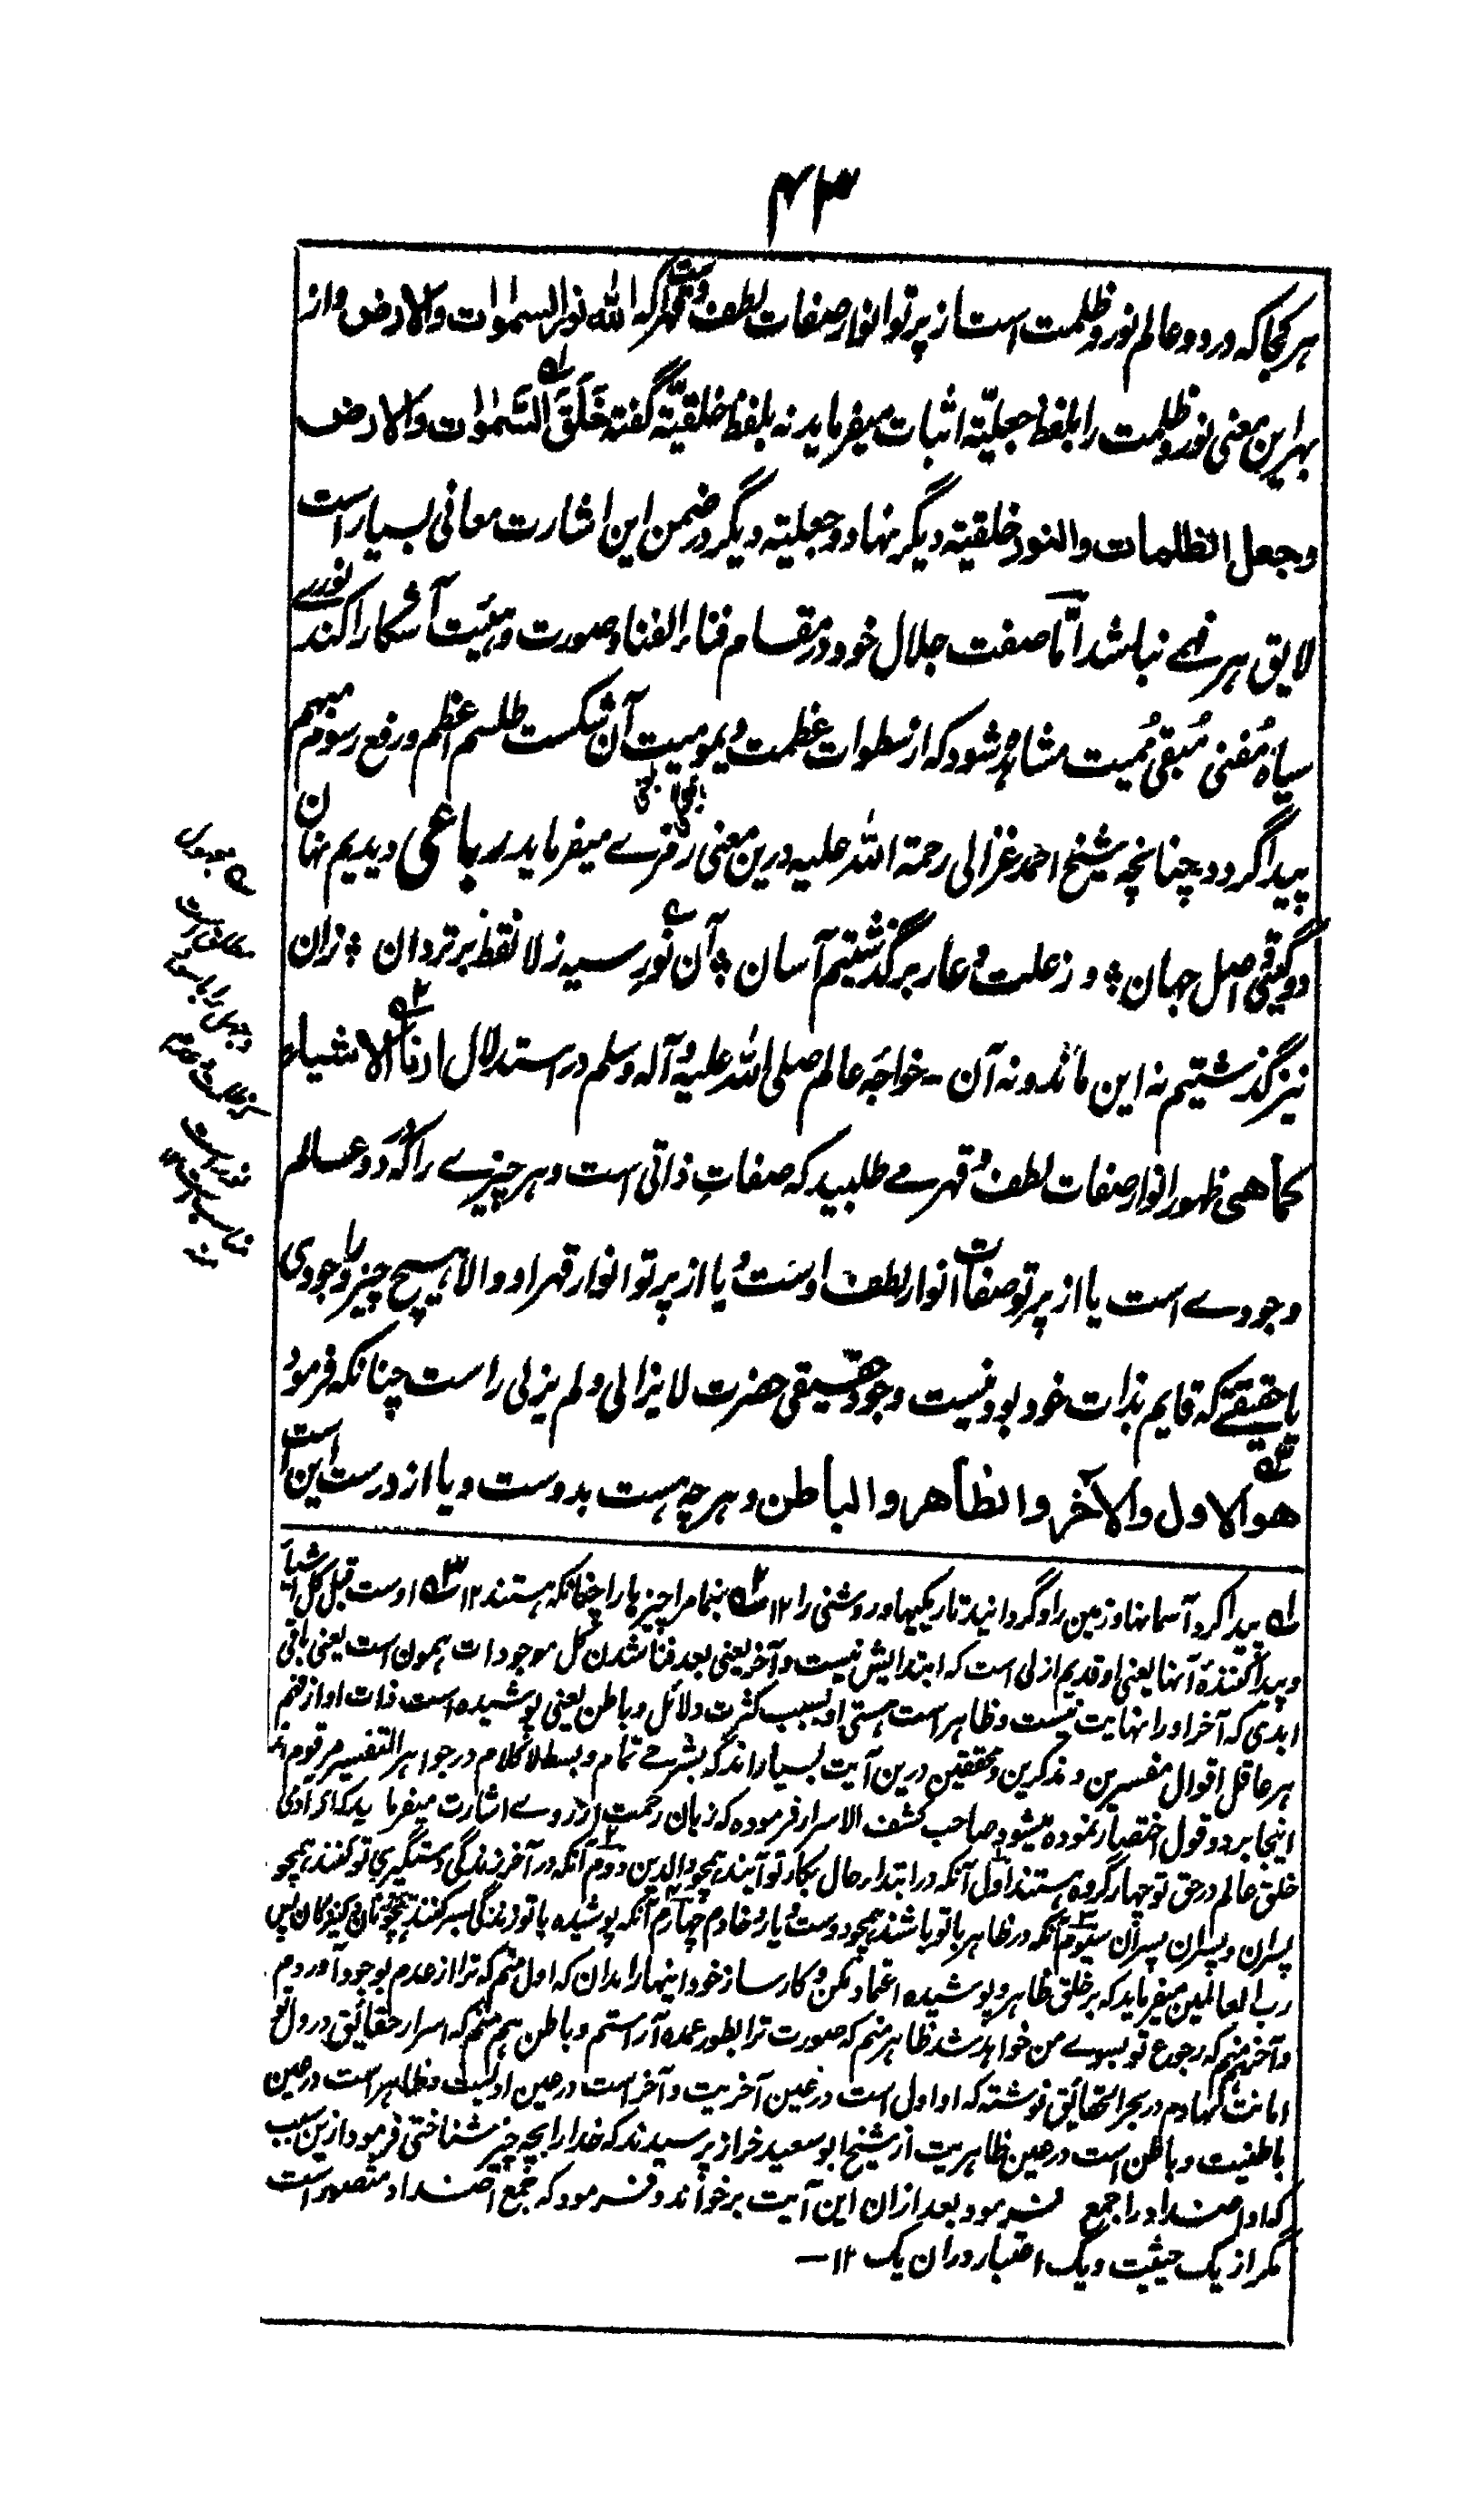 ۴۳
هر کجا که در دو عالم نور و ظلمت است از پرتو انوار صفات لطف و قهر است که الله نور السموات والارض واز
بهر این معنی نور و ظلمت را بلفظ جعلیّة اثبات میفرماید نه بلفظ خلقیّة گفته خَلَقَ السَّمٰوات والارض
وجعل الظلمات والنور خلقیته دیگر نهاد و جعلیته دیگر در ضمن این اشارت معانی بسیار است
لایق هر فهمے نباشد امّا صفت جلال خود در مقام فناء الفنا و صورت و هیئت آشکارا کند نورے
سیاه مُفنی مُبقی مُمیت مشاهد شود که از سطوات عظمت دیمومیت آن شکست طلسم اعظم و رفع رسوم مبهم
پیدا گردد چنانچه شیخ احمد غزالی رحمة الله علیه درین معنی رمزے میفرماید رباعی دیدیم نهان
دو گیتی و اصل جهان ؞ وز علت و عار برگذشتیم آسان ؞ آن نورِ سیه ز لا نقط برتر دان ؞ زان
نیز گذشتیم نه این ماند و نه آن - خواجه عالم صلی الله علیه و آله وسلم در استدلال ارنا الاشیاء
کماهی ظهور انوار صفات لطف و قهر مے طلبید که صفاتِ ذاتی است و هر چیزے را که در دو عالم
وجودے است یا از پرتو صفات انوار لطف اوست و یا از پرتو انوار قهر او و الا هیچ چیز را وجودی
یا حقیقتے که قایم بذات خود بود نیست وجود حقیقی حضرت لایزالی و لم یزلی راست چنانکه فرمود
هو الاول والآخر والظاهر والباطن و هرچه هست بدوست و یا ازدرست این است
۱؎ پیدا کرد آسمانها و زمین را و گردانید تاریکیها و روشنی را ۱۲ ۲؎ بنما مرا چیزها را چنانکه هستند ۱۲ ۳؎ اوست قبل کل اشیاء
و پیدا کنندهٔ آنها یعنی او قدیم ازلی است که ابتدایش نیست و آخر یعنی بعد فنا شدن کل موجودات همون است یعنی باقی
ابدی که آخر او را نهایت نیست و ظاهر است هستی او بسبب کثرت دلائل و باطن یعنی پوشیده است ذات او از فهم
هر عاقل اقوال مفسرین و مذکرین و محققین درین آیت بسیار اند که بشرحے تمام و بسط لا کلام در جواهر التفسیر مرقوم اند
اینجا بر دو قول اختصار نموده میشود صاحب کشف الاسرار فرموده که زبان رحمت از روے اشارت میفرماید که اے آدمی
خلق عالم در حق تو چهار گروه هستند اول آنکه در ابتدار حال بکار تو آیند همچو والدین دوم آنکه در آخر زندگی دستگیری تو کنند همچو
پسران و پسران پسران سیوم آنکه در ظاهر با تو باشند همچو دوست و یار و خادم چهارم آنکه پوشیده با تو زندگی بسر کنند همچو زنان و کنیزکان پس
رب العالمین میفرماید که بر خلق ظاهر و پوشیده اعتماد مکن و کارساز خود اینها را مدان که اول منم که ترا از عدم بوجود آوردم
و آخر منم که رجوع تو بسوے من خواهد شد ظاهر منم که صورت ترا بطور عمده آراستم و باطن هم منم که اسرار حقائق در دل تو
امانت نهادم در بحر الحقائق نوشته که او اول است در عین آخریت و آخر است در عین اولیت و ظاهر است در عین
باطنیت و باطن است در عین ظاهریت از شیخ ابو سعید خراز پرسیدند که خدا را بچه چیز شناختی فرمود ازین سبب
که او اضداد را جمع فرمود بعد ازان این آیت برخواند و فرمود که جمع اضداد متصور است
مگر از یک حیثیت و یک اعتبار دران یک ۱۲ —